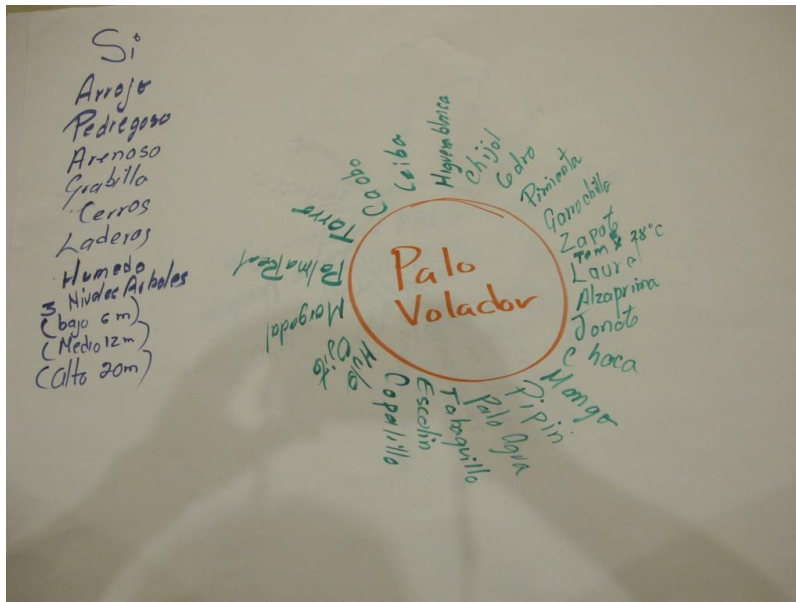 Si
Arrojo
Pedregoso
Arenoso
Grabilla
Cerros
Laderas
Humedo
3 Niveles Arboles
(bajo 6 m)
(Medio 12 m)
(alto 20m)
Palo
Volador
Ceiba
Higuera blanca
Chijol
Cedro
Pimienta
Garrochilla
Zapote
Tem 28°C
Laurel
Alzaprima
Jonote
Chaca
Mango
Pipin
Palo agua
Tabaquillo
Escolin
Copalillo
Hule
Ojite
Margadal
Palma Real
Tarro
Caobo